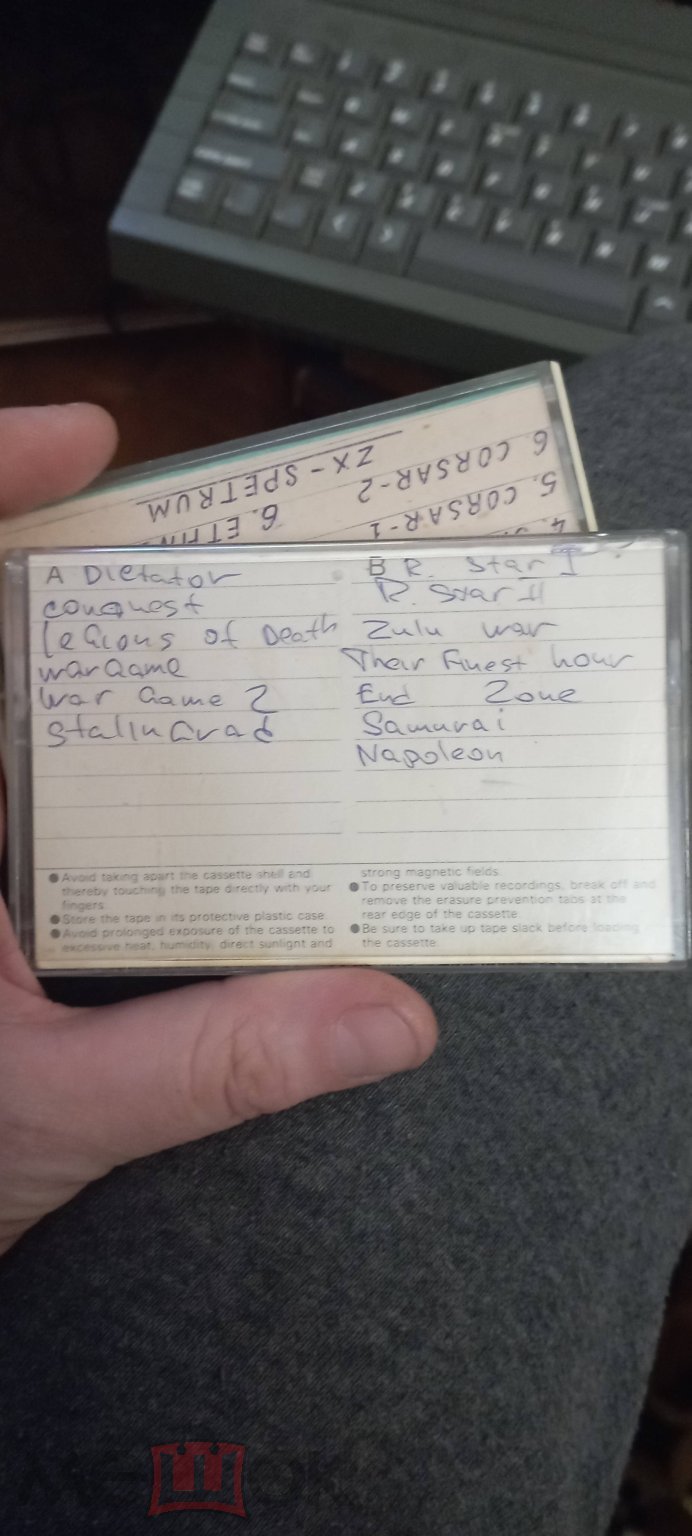 6 CORSAR-2
ZX-SPETRUM
5. CORSAR-1
6. ETFIN
4.
A Dictator
conquest
leGions of Death
warGame
War Game 2
StalinGrad
B R. Star I
R. Star II
Zulu war
Their Finest hour
End Zone
Samurai
Napoleon
Avoid taking apart the cassette shell and
thereby touching the tape directly with your
fingers.
Store the tape in its protective plastic case.
Avoid prolonged exposure of the cassette to
excessive heat, humidity, direct sunlight and
strong magnetic fields.
To preserve valuable recordings, break off and
remove the erasure prevention tabs at the
rear edge of the cassette.
Be sure to take up tape slack before loading
the cassette.